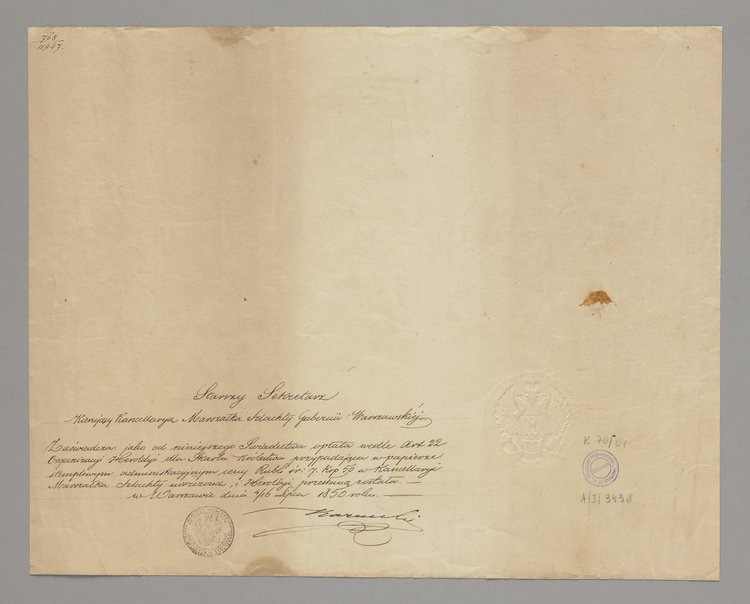 768
11447.
Starszy Sekretarz
Kierujący Kancellaryą Marszałka Szlachty Gubernii Warszawskiéj
Zaświadcza: jako od niniejszego Świadectwa opłata wedle Art. 22
Organizacyi Heroldyi dla Skarbu Królestwa przypadająca w papierze
stemplowym ceny Rubli sr: 7. Kop 50 w Kancellaryi
Marszałka Szlachty uiszczoną i Heroldyi przesłaną została. —
w Warszawie dnia 4/16 Lipca 1850 roku. —
K 70/01
A/I/3438